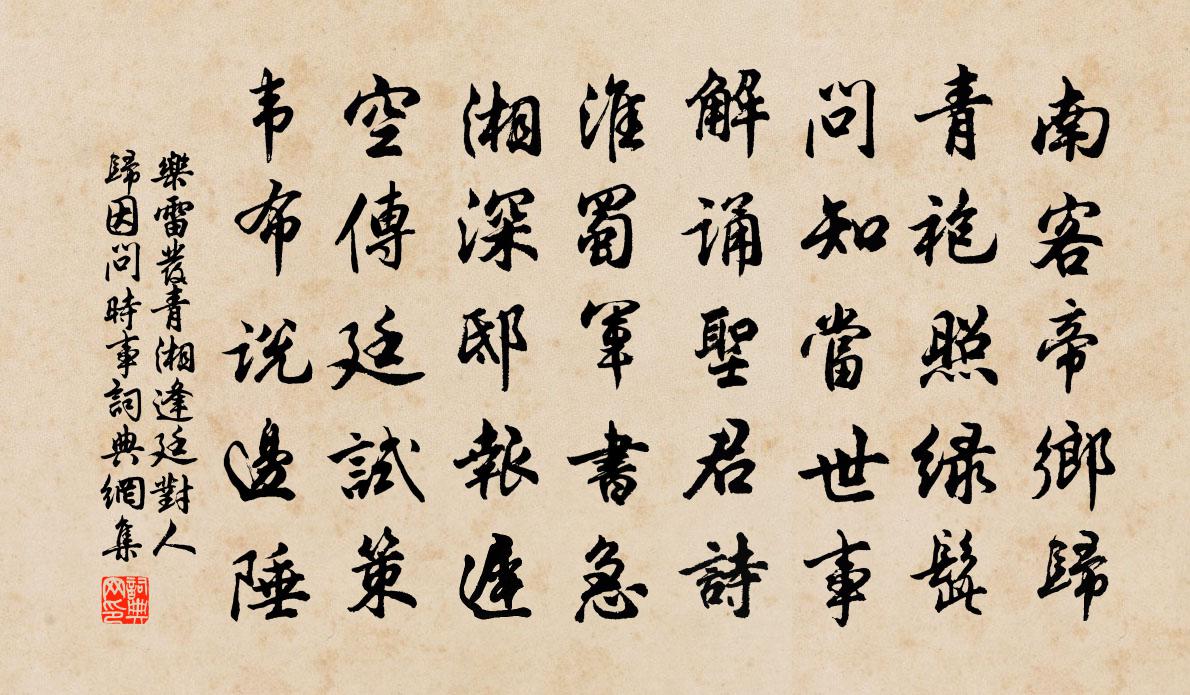 南客帝鄉歸
青袍照綠髭
問知當世事
解誦聖君詩
淮蜀軍書急
湘深邸報遲
空傳廷試策
韦布說邊陲
樂雷發青湘逢廷對人
歸因問時事詞典網集
詞典
网印